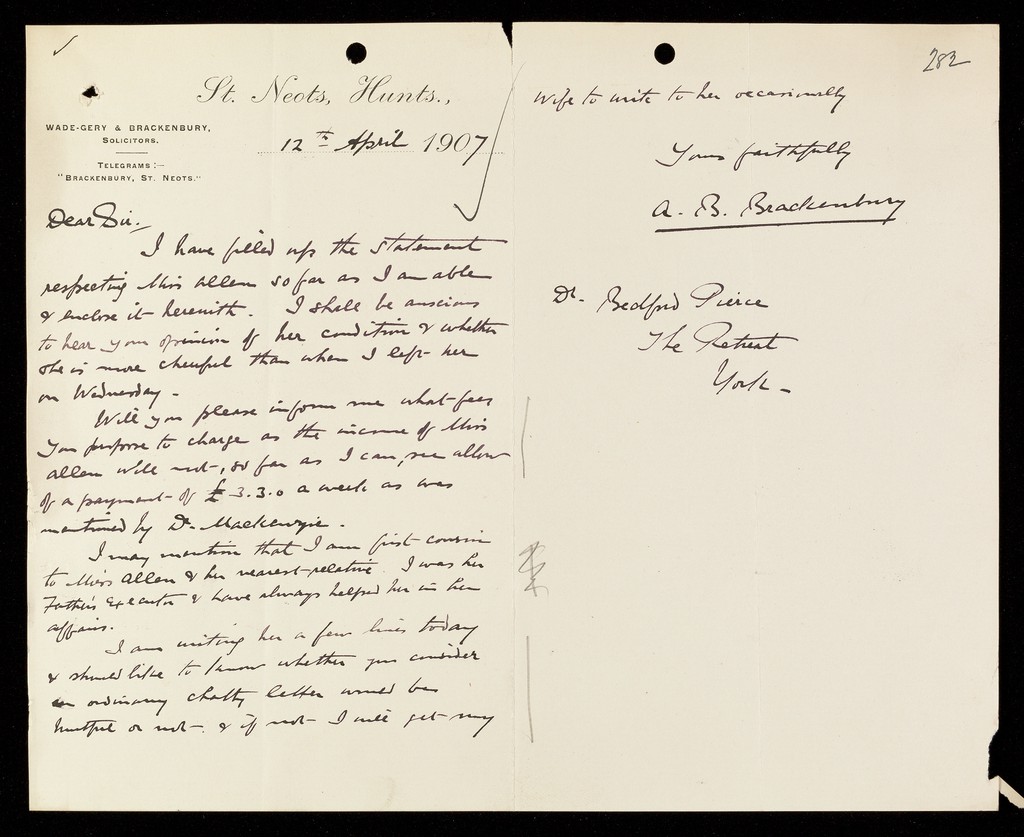 St. Neots, Hunts.,
WADE-GERY & BRACKENBURY,
SOLICITORS.
TELEGRAMS:—
"BRACKENBURY, ST. NEOTS."
12th April 1907
Dear Sir,
I have filled up the statement
respecting Miss Allen so far as I am able
& enclose it herewith. I shall be anxious
to hear your opinion of her condition & whether
she is more cheerful than when I left her
on Wednesday -
Will you please inform me what fees
you purpose to charge as the income of Miss
Allen will not, so far as I can, see allow
of a payment of £3.3.0 a week as was
mentioned by Dr. Mackenzie.
I may mention that I am first cousin
to Miss Allen & her nearest relative. I was her
Father's Executor & have always helped her in her
affairs.
I am writing her a few lines today
& should like to know whether you consider
an ordinary chatty letter would be
hurtful or not - & if not I will get my
282
Wife to write to her occasionally
Yours faithfully
A. B. Brackenbury
Dr. Bedford Pierce
The Retreat
York -